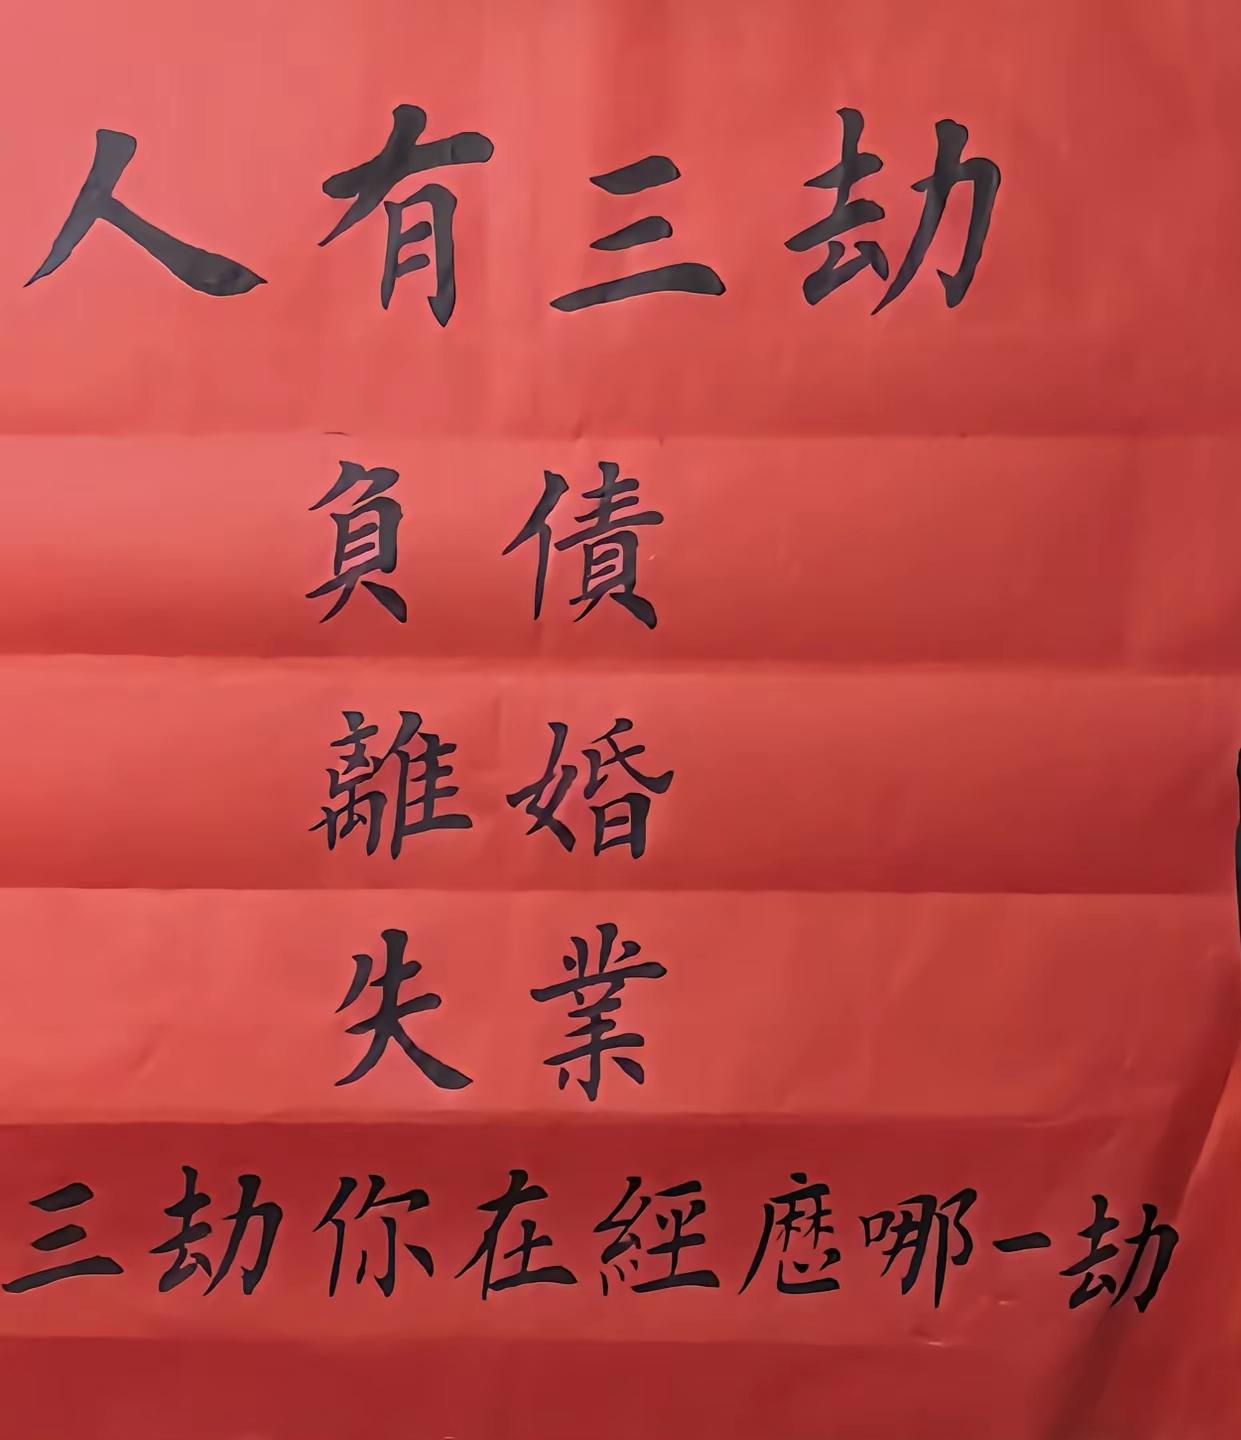 人有三劫
負債
離婚
失業
三劫你在經歷哪一劫